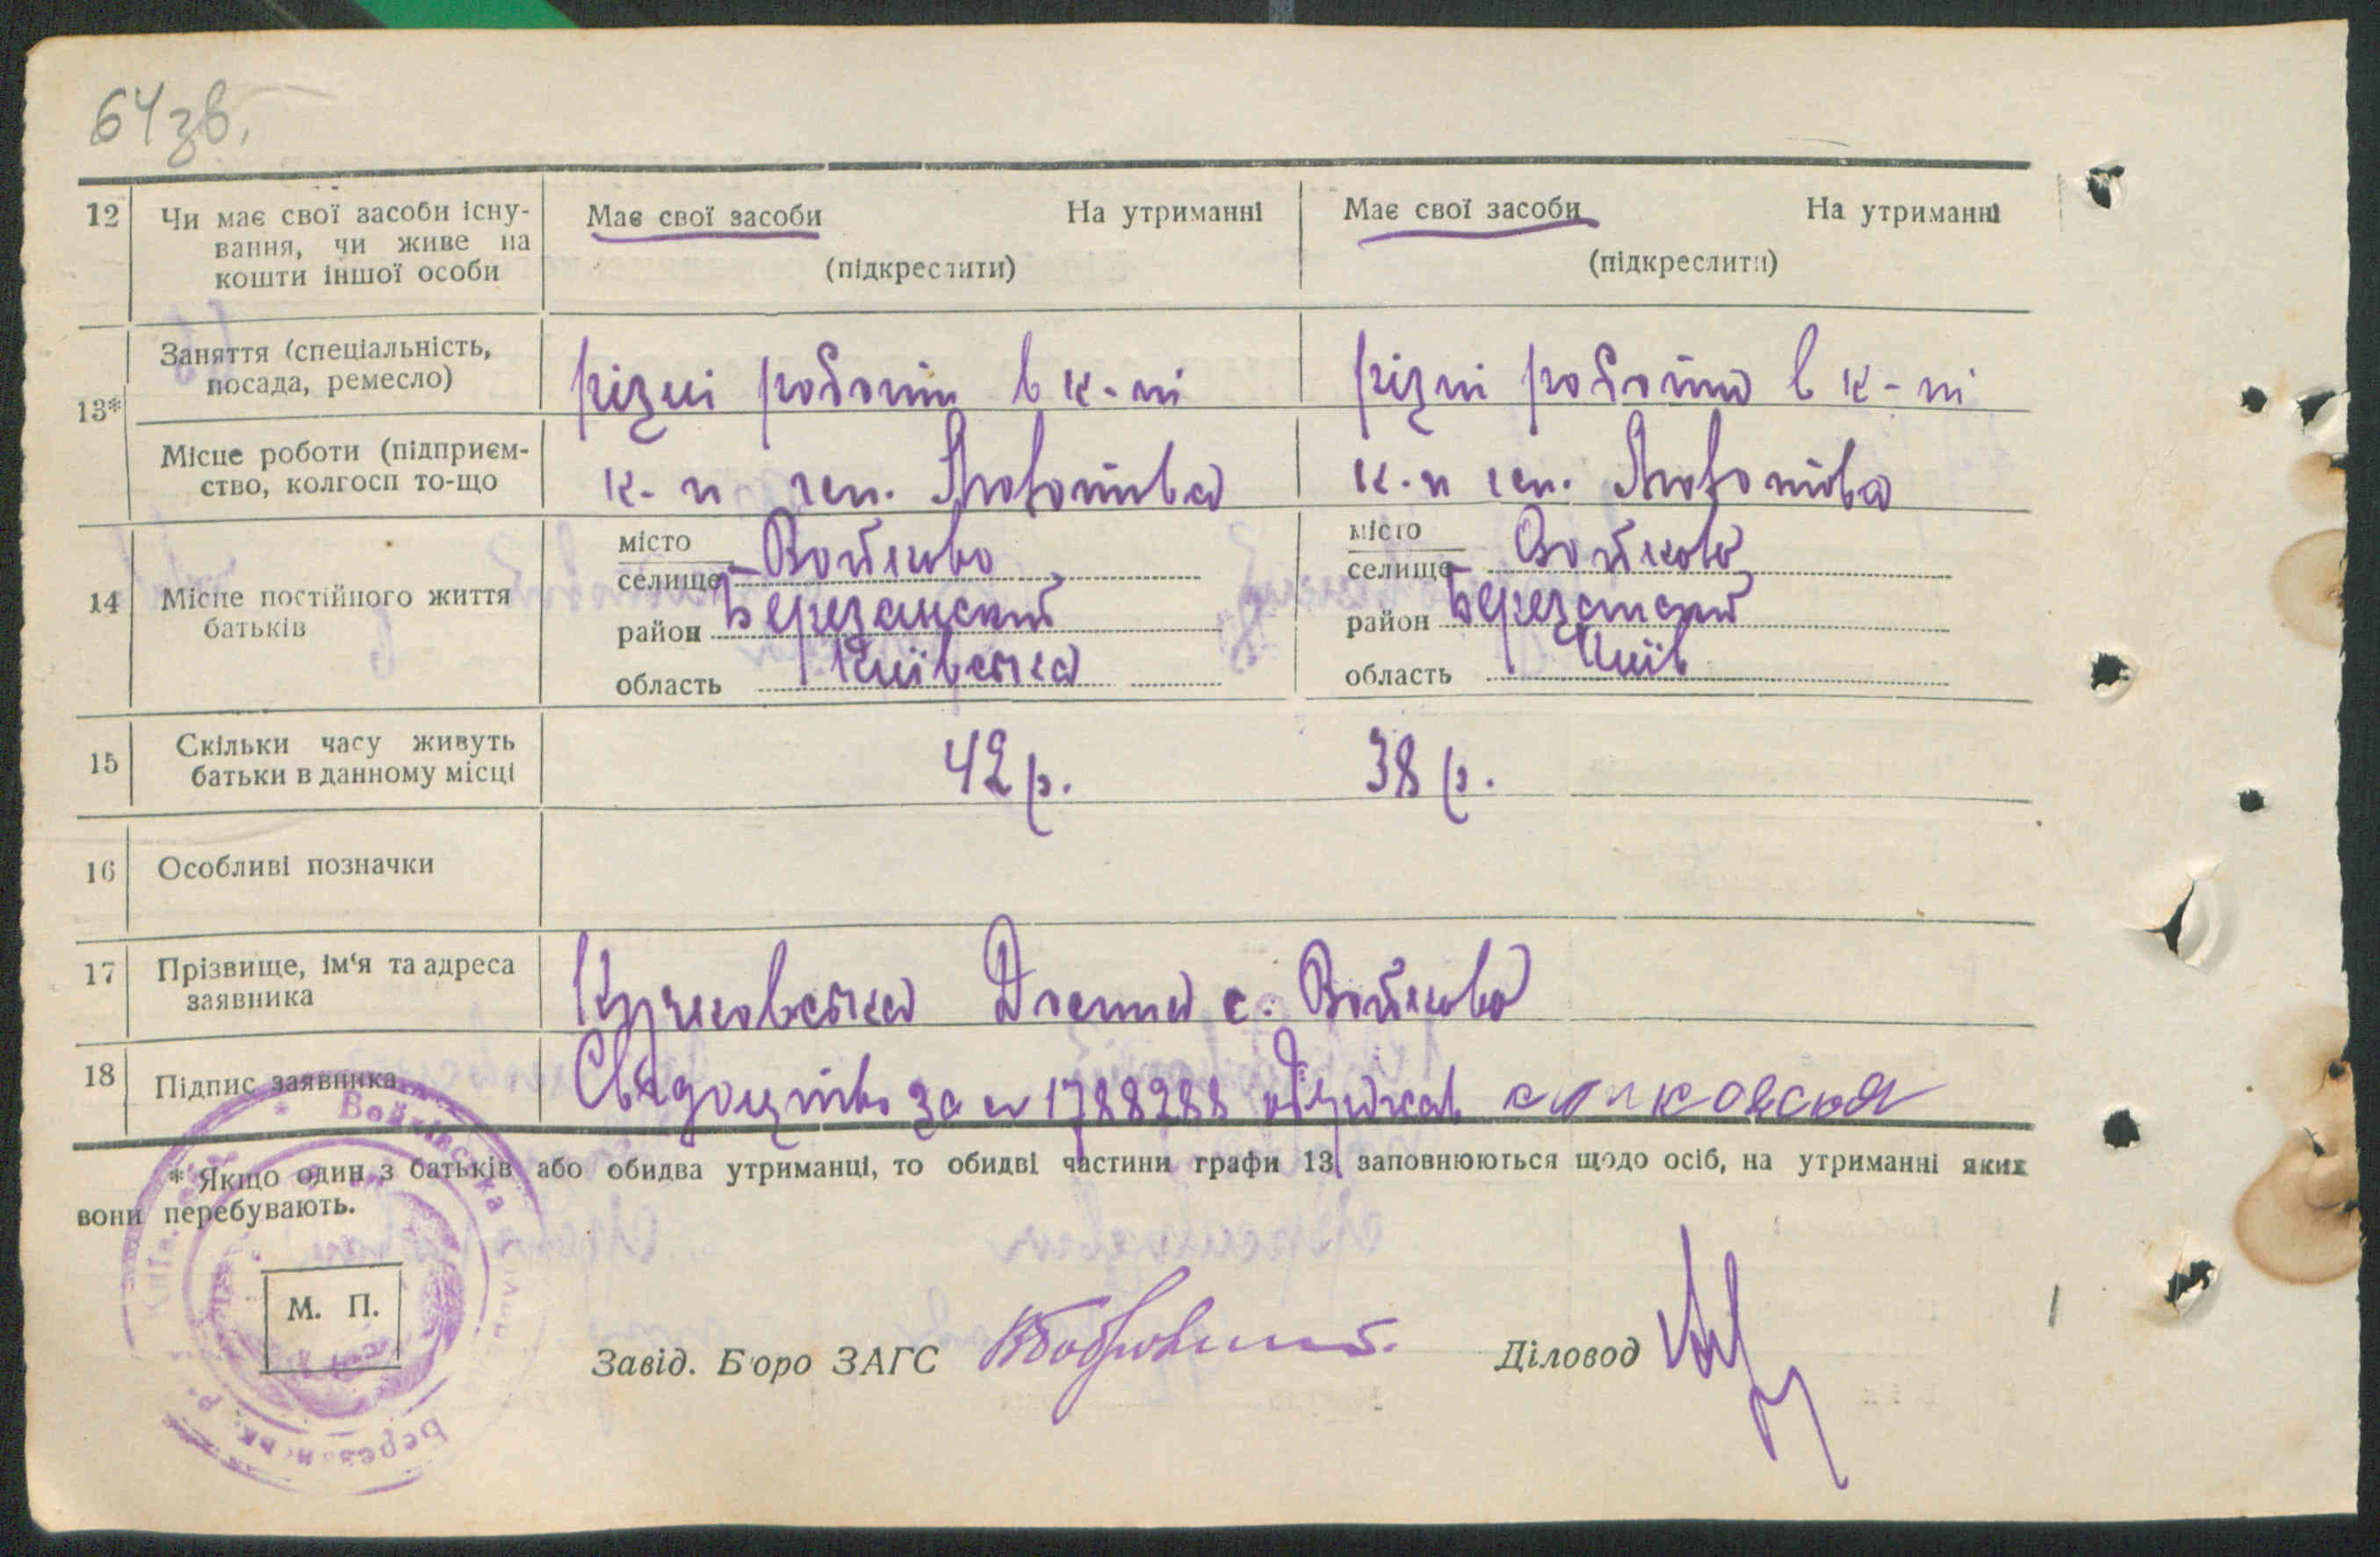 64зв.
12 Чи має свої засоби існу-
вання, чи живе на
кошти іншої особи
Має свої засоби На утриманні
(підкреслити)
Має свої засоби На утриманні
(підкреслити)
13*
Заняття (спеціальність,
посада, ремесло)
різні роботи в к-пі
різні роботи в к-пі
Місце роботи (підприєм-
ство, колгосп то-що
к-п
к-п
14 Місце постійного життя
батьків
місто
селище Войтково
район Березанский
область Київська
місто
селище Войтково
район Березанский
область Київ
15 Скільки часу живуть
батьки в данному місці
42 р.
38 р.
16 Особливі позначки
17 Прізвище, ім'я та адреса
заявника
с. Войтково
18 Підпис заявника
Свідоцтво за № 1788288
* Якщо один з батьків або обидва утриманці, то обидві частини графи 13 заповнюються щодо осіб, на утриманні яких
вони перебувають.
М. П.
Завід. Бюро ЗАГС
Діловод